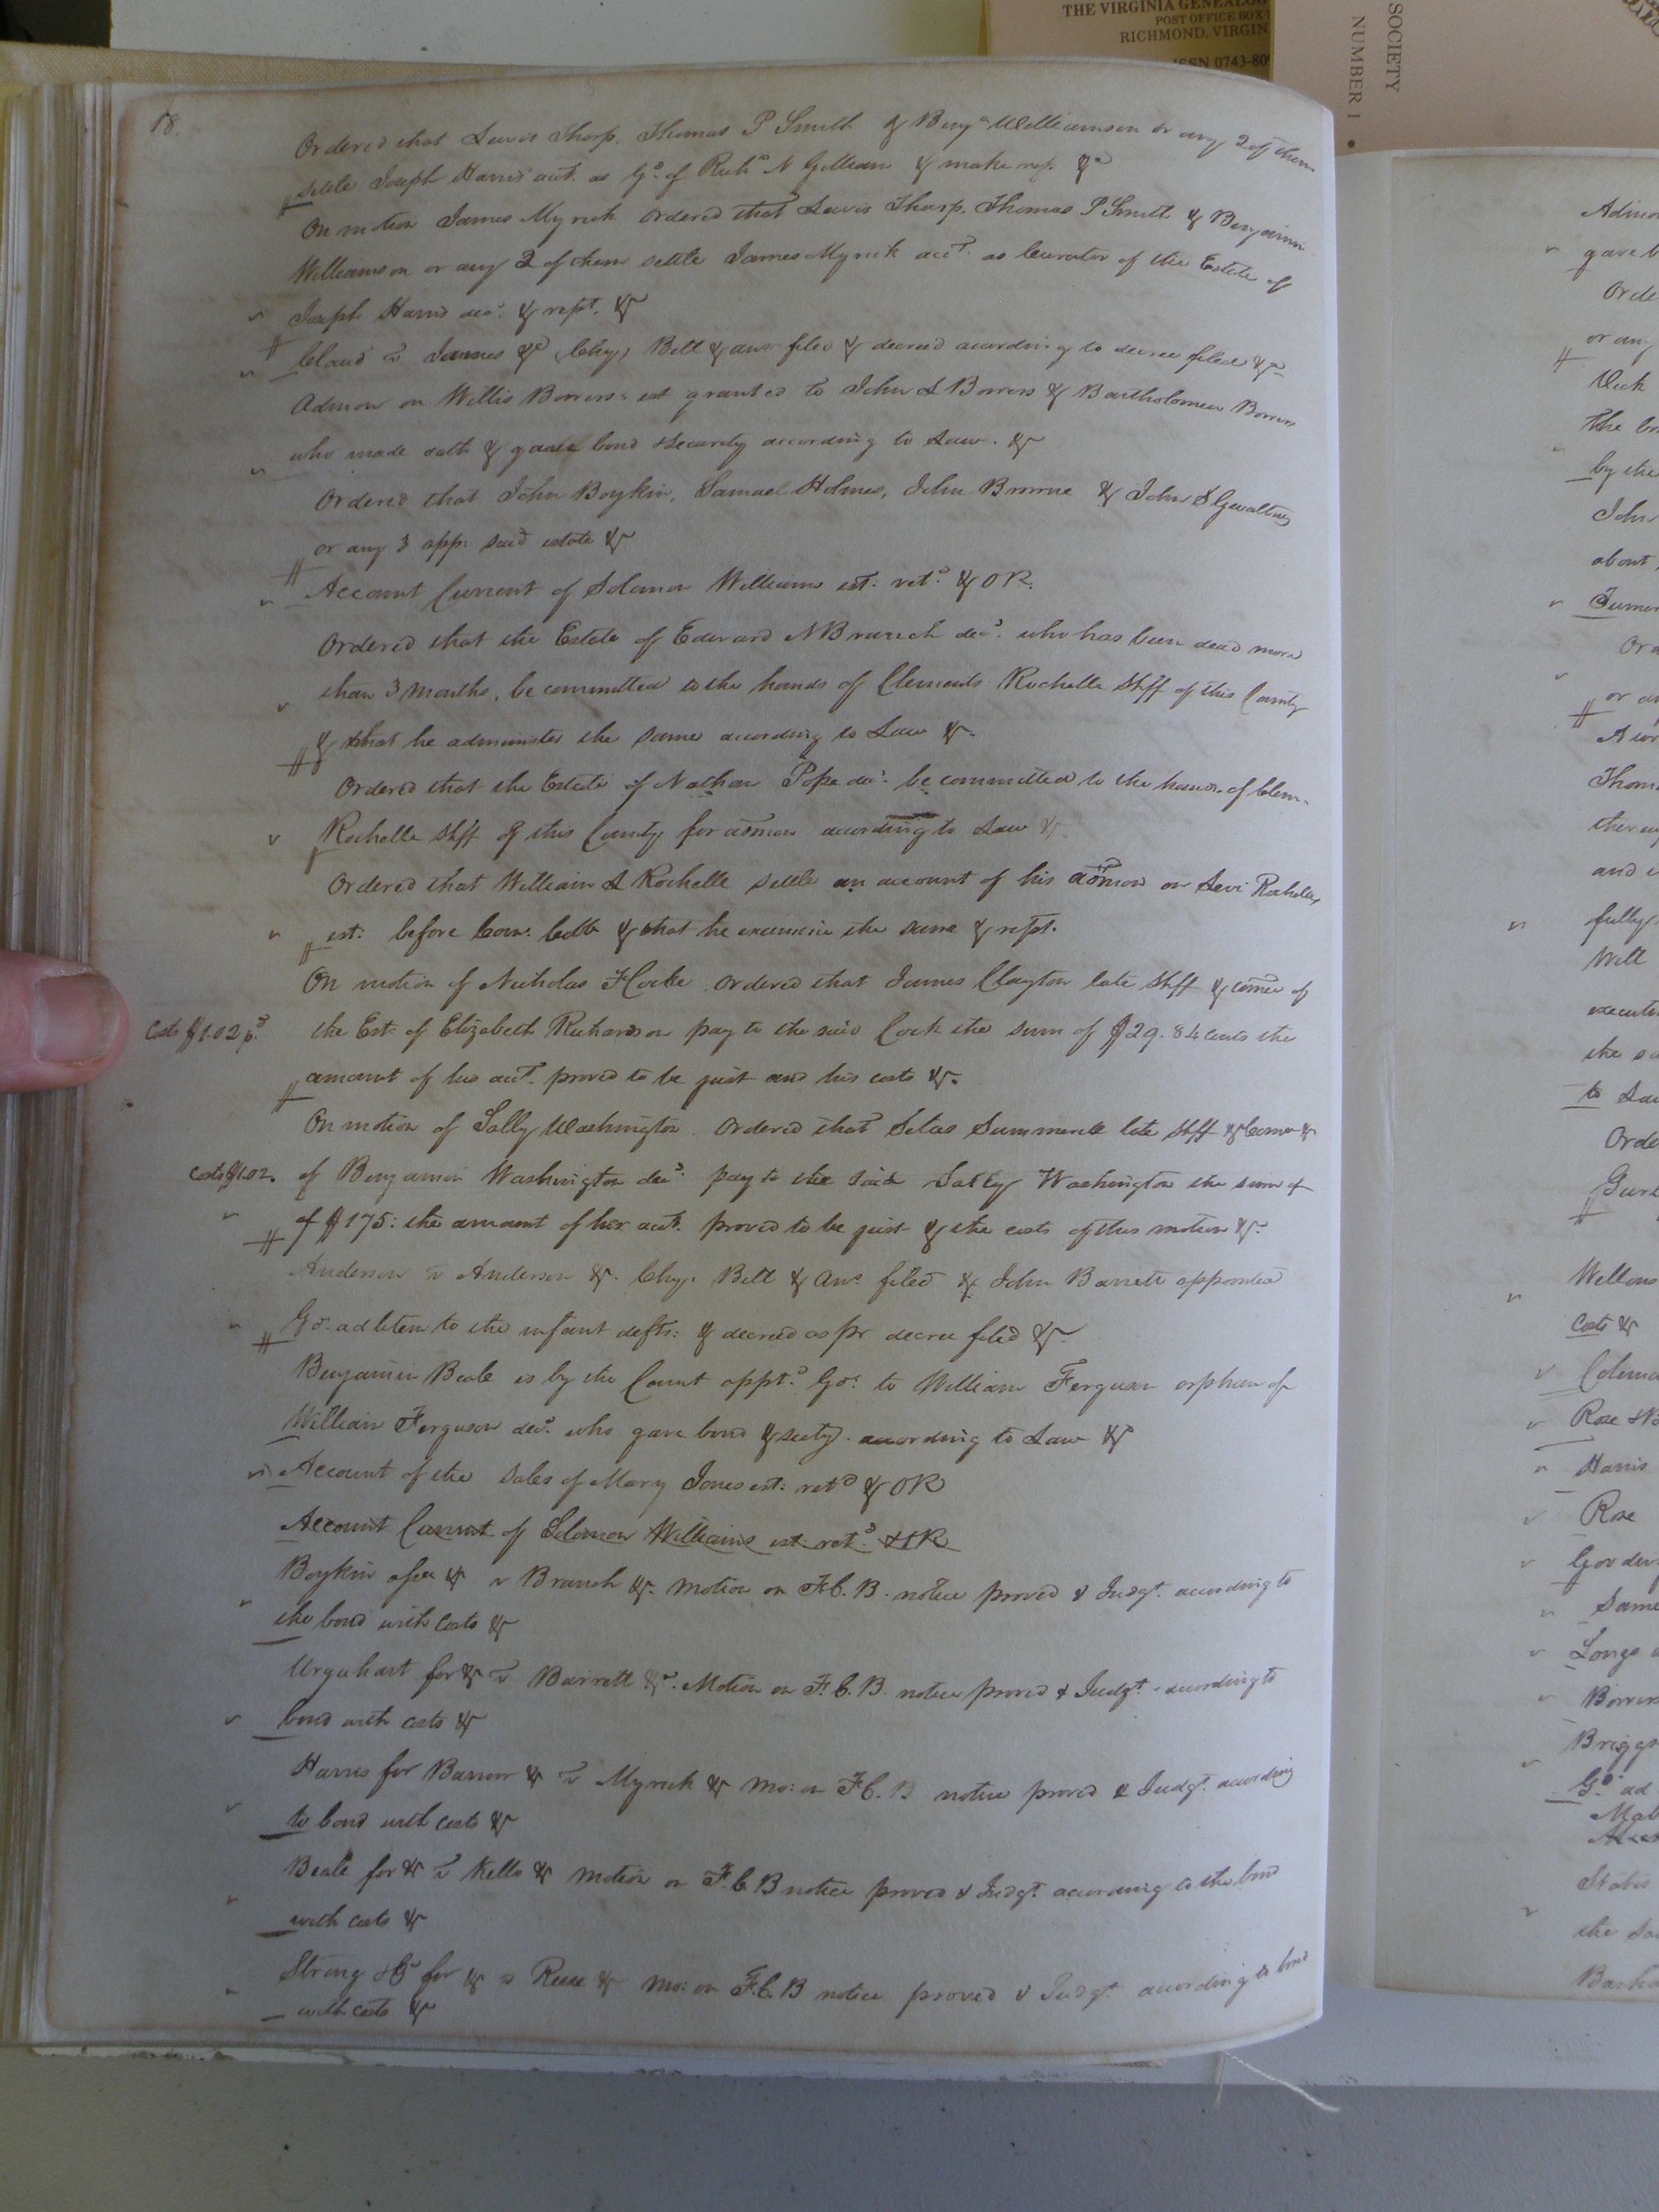 THE VIRGINIA GENEALOG
POST OFFICE BOX
RICHMOND, VIRGIN
ISSN 0743-80
SOCIETY
NUMBER 1
18.
Ordered that Lewis Thorp, Thomas P Smith & Benja Williamson or any 2 of them
settle Joseph Harris acct. as Gd. of Richd N Gilliam & make rep. &c
On motion James Myrick ordered that Lewis Thorp, Thomas P Smith & Benjamin
Williamson or any 2 of them settle James Myrick acct. as Curator of the Estate of
Joseph Harris decd. & rept. &c
Claud v James &c Chy, Bill & answ filed & decreed according to decree filed &c
Admon on Willis Bowers's est granted to John L Bowers & Bartholomew Bowers
who made oath & gave bond & Security according to Law. &c
Ordered that John Boykin, Samuel Holmes, John Browne & John S Gwaltney
or any 3 app: said estate &c
Account Current of Solomon Williams est: retd. & OR.
Ordered that the Estate of Edward N Branch decd. who has been dead more
than 3 months, be committed to the hands of Clements Rochelle Shff of this County
& that he administer the same according to Law &c.
Ordered that the Estate of Nathan Pope decd. be committed to the hands of Clem.
Rochelle Shff of this County for admon according to Law &c
Ordered that William L Rochelle settle an account of his admon on Levi Rochelles
est: before Com: Cobb & that he examine the same & rept.
On motion of Nicholas F Cocke ordered that James Clayton late Shff & comee of
Costs $1.02 pd the Est. of Elizabeth Richardson pay to the said Cock the sum of $29.84 cents the
amount of his acct. proved to be just and his costs &c.
On motion of Sally Washington ordered that Silas Summerell late Shff & Comee &c
Costs $1.02. of Benjamin Washington decd. pay to the said Sally Washington the sum of
of $175: the amount of her acct. proved to be just & the costs of this motion &c.
Anderson v Anderson &c. Chy. Bill & Ans. filed & John Barrett appointed
Gd. ad litem to the infant defts: & decreed as pr decree filed &c.
Benjamin Beale is by the Court apptd. Gd. to William Ferguson orphan of
William Ferguson decd. who gave bond & secty. according to Law &c
Account of the sales of Mary Jones est: retd & OR
Account Current of Solomon Williams est: retd. & OR
Boykin assee &c v Branch &c. motion on F.C.B. notice proved & Judgt. according to
the bond with costs &c
Urquhart for &c v Barrett &c. Motion on F.C.B. notice proved & Judgt. according to
bond with costs &c
Harris for Barrow &c v Myrick &c mo: on F.C.B notice proved & Judgt. according
to bond with costs &c
Beale for &c v Kello &c motion on F.C.B notice proved & Judgt. according to the bond
with costs &c
Strong & Co for &c v Reese &c mo: on F.C.B notice proved & Judgt. according to bond
with costs &c
gave
Orde
or any
Vick
the
by the
John
about
Or
Thom
and
fully
Will
execut
the
to
Orde
Wellons
Costs &c
Colema
Rose
Harris
Rose
Goodwi
Same
Longs
Bowers
Briggs
Gd. ad
States
the